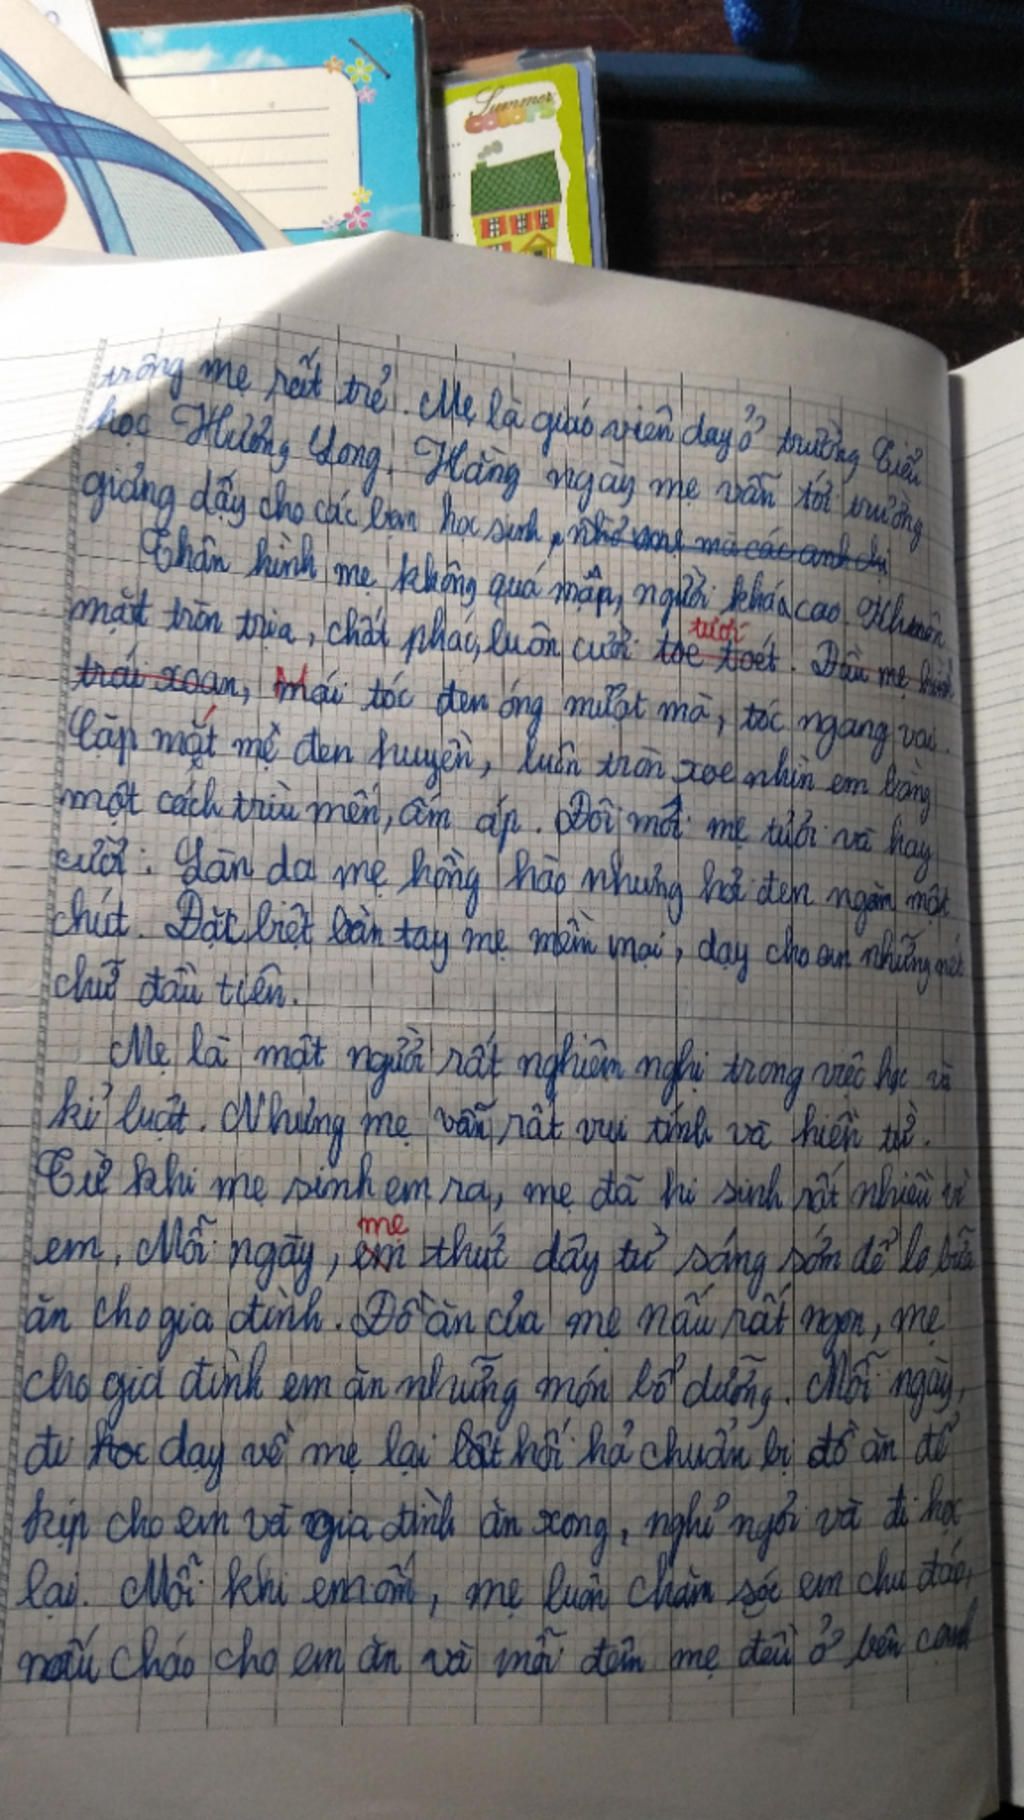 Summer
COLORS
trông mẹ rất trẻ. Mẹ là giáo viên dạy ở trường Tiểu
học Hương Long. Hằng ngày mẹ vẫn tới trường
giảng dạy cho các bạn học sinh, nhờ mẹ mà các anh chị
Thân hình mẹ không quá mập, người khá cao. Khuôn
tươi
mặt tròn trịa, chất phác, luôn cười toe toét. Đầu mẹ hình
trái xoan, Mái tóc đen óng mượt mà, tóc ngang vai.
Cặp mắt mẹ đen huyền, luôn tròn xoe nhìn em bằng
một cách trìu mến, ấm áp. Đôi môi mẹ tươi và hay
cười. Làn da mẹ hồng hào nhưng hơi đen ngăm một
chút. Đặt biệt bàn tay mẹ mềm mại, dạy cho em những nét
chữ đầu tiên.
Mẹ là một người rất nghiêm nghị trong việc học và
kỉ luật. Nhưng mẹ vẫn rất vui tính và hiền từ.
Từ khi mẹ sinh em ra, mẹ đã hi sinh rất nhiều vì
mẹ
em. Mỗi ngày, em thứt dậy từ sáng sớm để lo bữa
ăn cho gia đình. Đồ ăn của mẹ nấu rất ngon, mẹ
cho gia đình em ăn những món bổ dưỡng. Mỗi ngày,
đi học dạy về mẹ lại hối hả chuẩn bị đồ ăn để
kịp cho em và gia đình ăn xong, nghỉ ngơi và đi học
lại. Mỗi khi em ốm, mẹ luôn chăm sóc em chu đáo,
nấu cháo cho em ăn và mỗi đêm mẹ đều ở bên cạnh